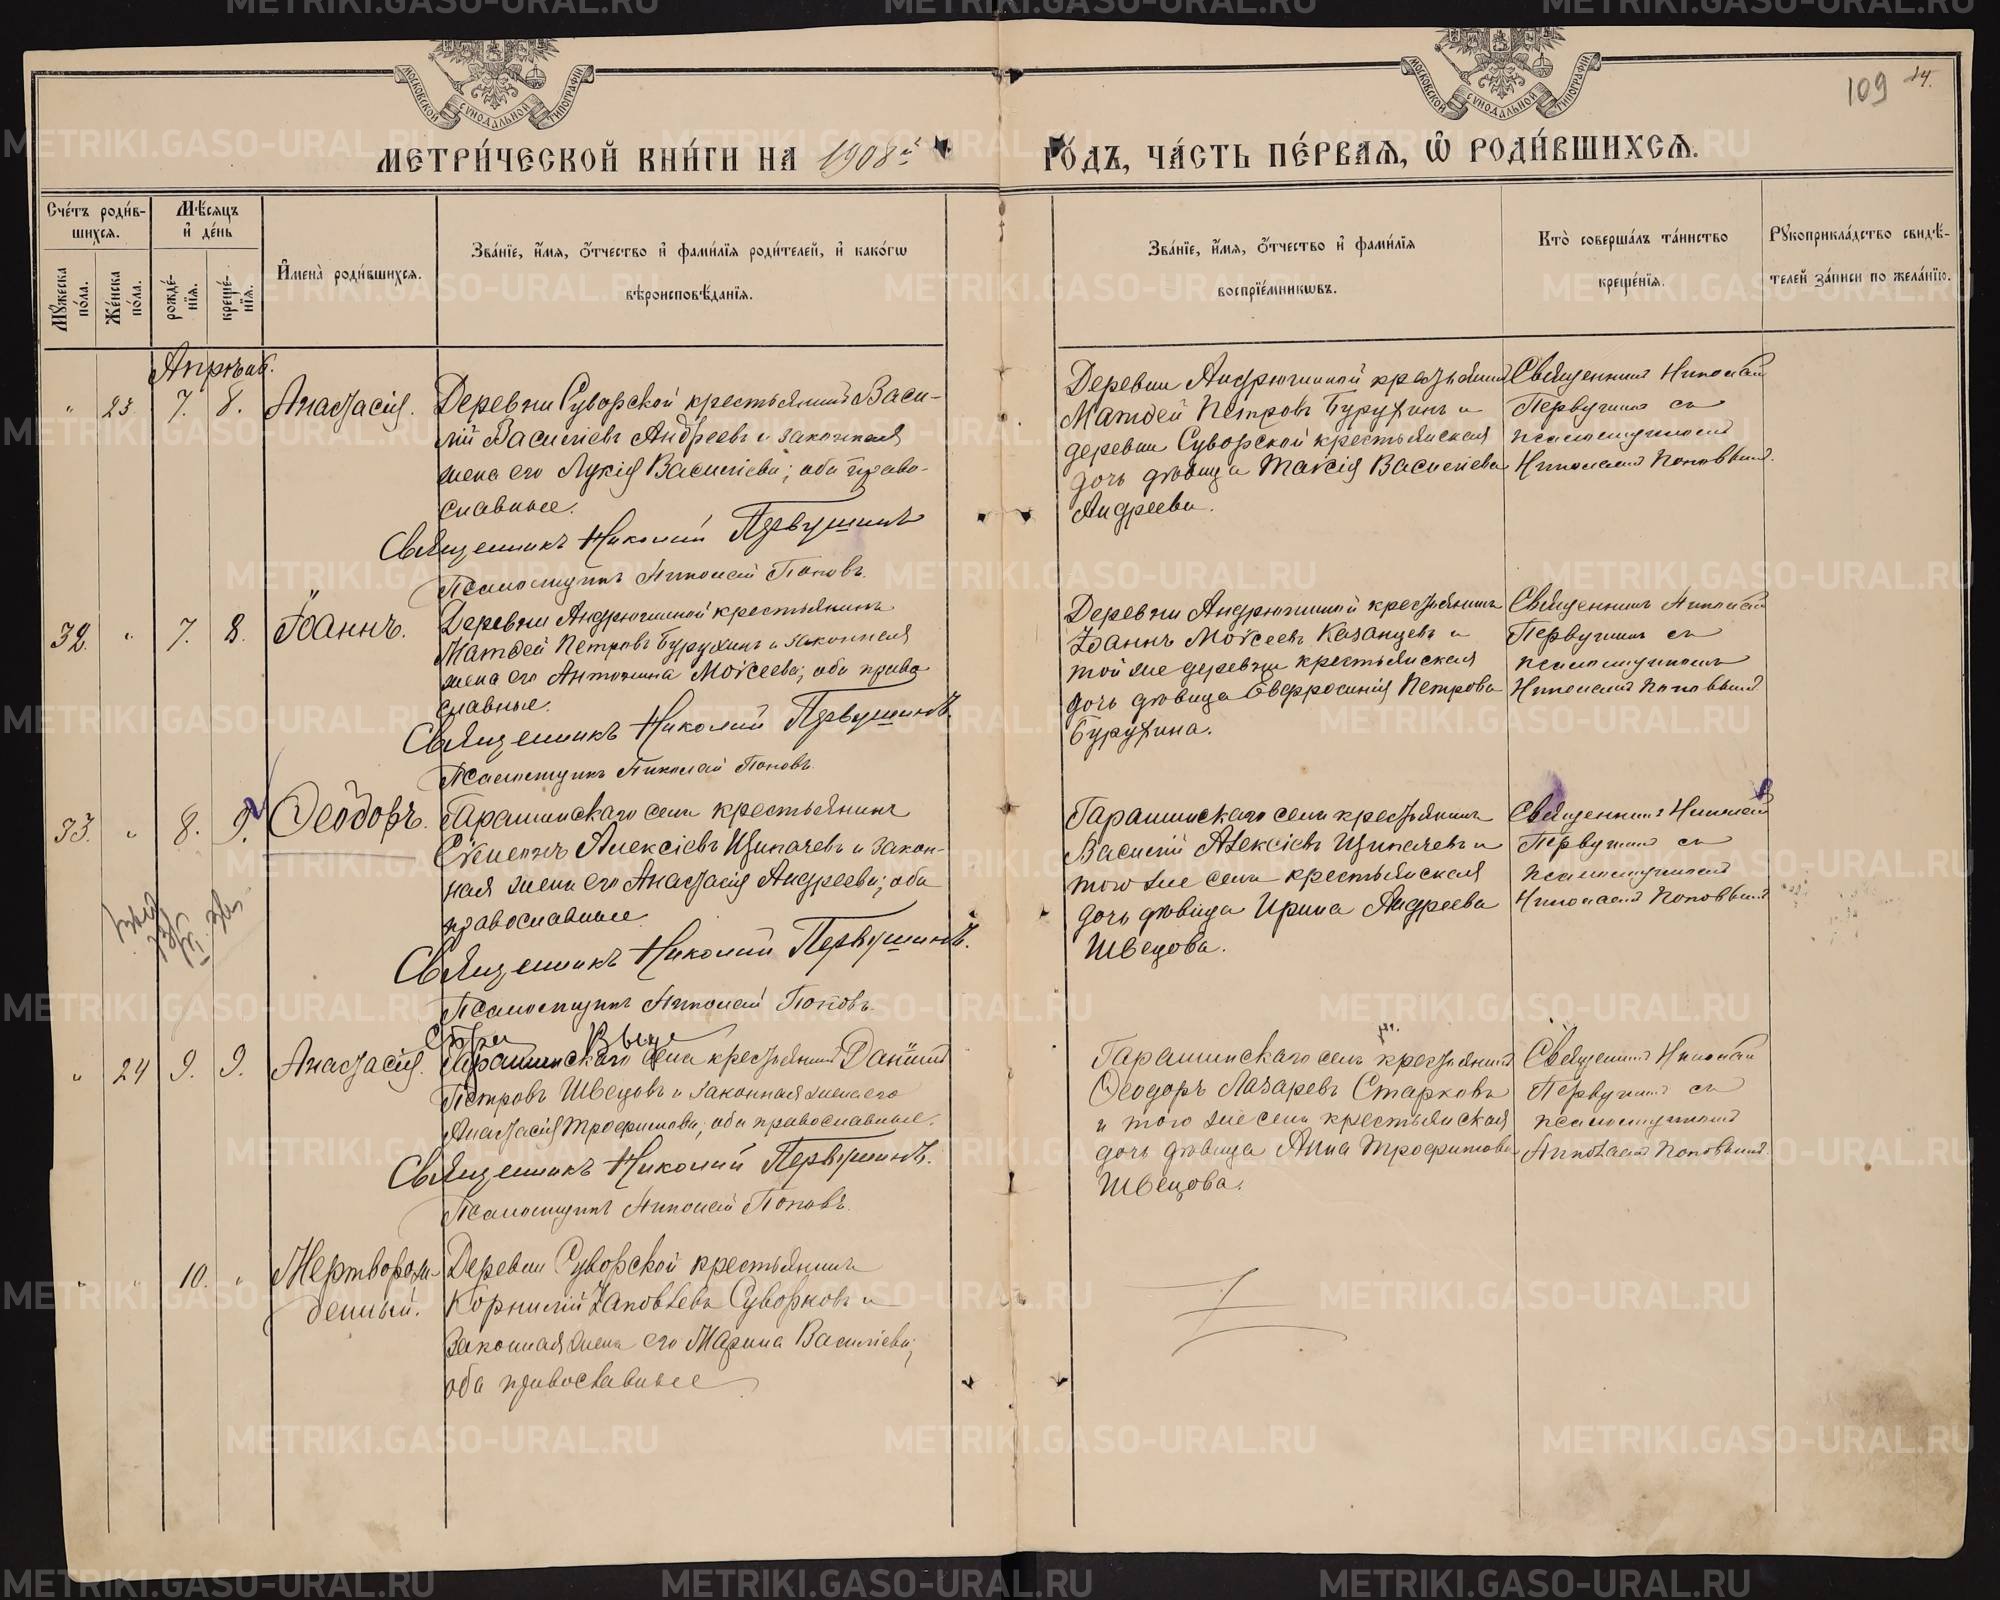 МОСКОВСКОЙ СѴНОДАЛЬНОЙ ТИПОГРАФІИ
МОСКОВСКОЙ СѴНОДАЛЬНОЙ ТИПОГРАФІИ
109 24.
МЕТРИ́ЧЕСКОЙ КНИ́ГИ НА 1908й ГО́ДЪ, ЧА́СТЬ ПЕ́РВАѦ, Ѿ РОДИ́ВШИХСѦ.
Сче́тъ роди́в-
шихсѧ.
Мꙋжеска по́ла.
Же́нска по́ла.
Мѣ́сѧцъ
и҆ де́нь
рожде́-
нїѧ.
креще́-
нїѧ.
И҆мена̀ роди́вшихсѧ.
Зва́нїе, и҆́мѧ, ѻ҆́тчество и҆ фами́лїѧ роди́телей, и҆ како́гѡ
вѣроисповѣ́данїѧ.
Зва́нїе, и҆́мѧ, ѻ҆́тчество и҆ фами́лїѧ
воспрїе́мникѡвъ.
Кто̀ соверша́лъ та́инство
креще́нїѧ.
Рꙋкоприкла́дство свидѣ́-
телей за́писи по жела́нїю.
Апрѣль.
" 23. 7. 8. Анастасія.
Деревни Суворской крестьянинъ Васи-
лій Василіевъ Андреевъ и законная
жена его Лукія Василіева; оба право-
славные.
Священникъ Николай Первушинъ
Псаломщикъ Николай Поповъ.
Деревни Андрюшиной крестьянинъ
Матѳей Петровъ Бурухинъ и
деревни Суворской крестьянская
дочь дѣвица Таисія Василіева
Андреева.
Священникъ Николай
Первушинъ съ
псаломщикомъ
Николаемъ Поповымъ.
32. " 7. 8. Іоаннъ.
Деревни Андрюшиной крестьянинъ
Матѳей Петровъ Бурухинъ и законная
жена его Антонина Моисеева; оба право
славные.
Священникъ Николай Первушинъ
Псаломщикъ Николай Поповъ.
Деревни Андрюшиной крестьянинъ
Іоаннъ Моисеевъ Казанцевъ и
той же деревни крестьянская
дочь дѣвица Евфросинія Петрова
Бурухина.
Священникъ Николай
Первушинъ съ
псаломщикомъ
Николаемъ Поповымъ
33. " 8. 9. Ѳеодоръ.
Гарашинскаго села крестьянинъ
Симеонъ Алексіевъ Щипачевъ и закон-
ная жена его Анастасія Андреева; оба
православные.
Священникъ Николай Первушинъ.
Псаломщикъ Николай Поповъ.
Гарашинскаго села крестьянинъ
Василій Алексіевъ Щипачевъ и
того же села крестьянская
дочь дѣвица Ирина Андреева
Швецова.
Священникъ Николай
Первушинъ съ
псаломщикомъ
Николаемъ Поповымъ
" 24 9. 9. Анастасія.
Гарашинскаго села крестьянинъ Даніилъ
Петровъ Швецовъ и законная жена его
Анастасія Трофимова; оба православные.
Священникъ Николай Первушинъ.
Псаломщикъ Николай Поповъ.
Гарашинскаго села крестьянинъ
Ѳеодоръ Лазаревъ Старковъ
и того же села крестьянская
дочь дѣвица Анна Трофимова
Швецова.
Священникъ Николай
Первушинъ съ
псаломщикомъ
Николаемъ Поповымъ.
" " 10. " Мертворож-
денный.
Деревни Суворской крестьянинъ
Корнилій Іаковлевъ Суворковъ и
законная жена его Марина Василіева;
оба православные
METRIKI.GASO-URAL.RU